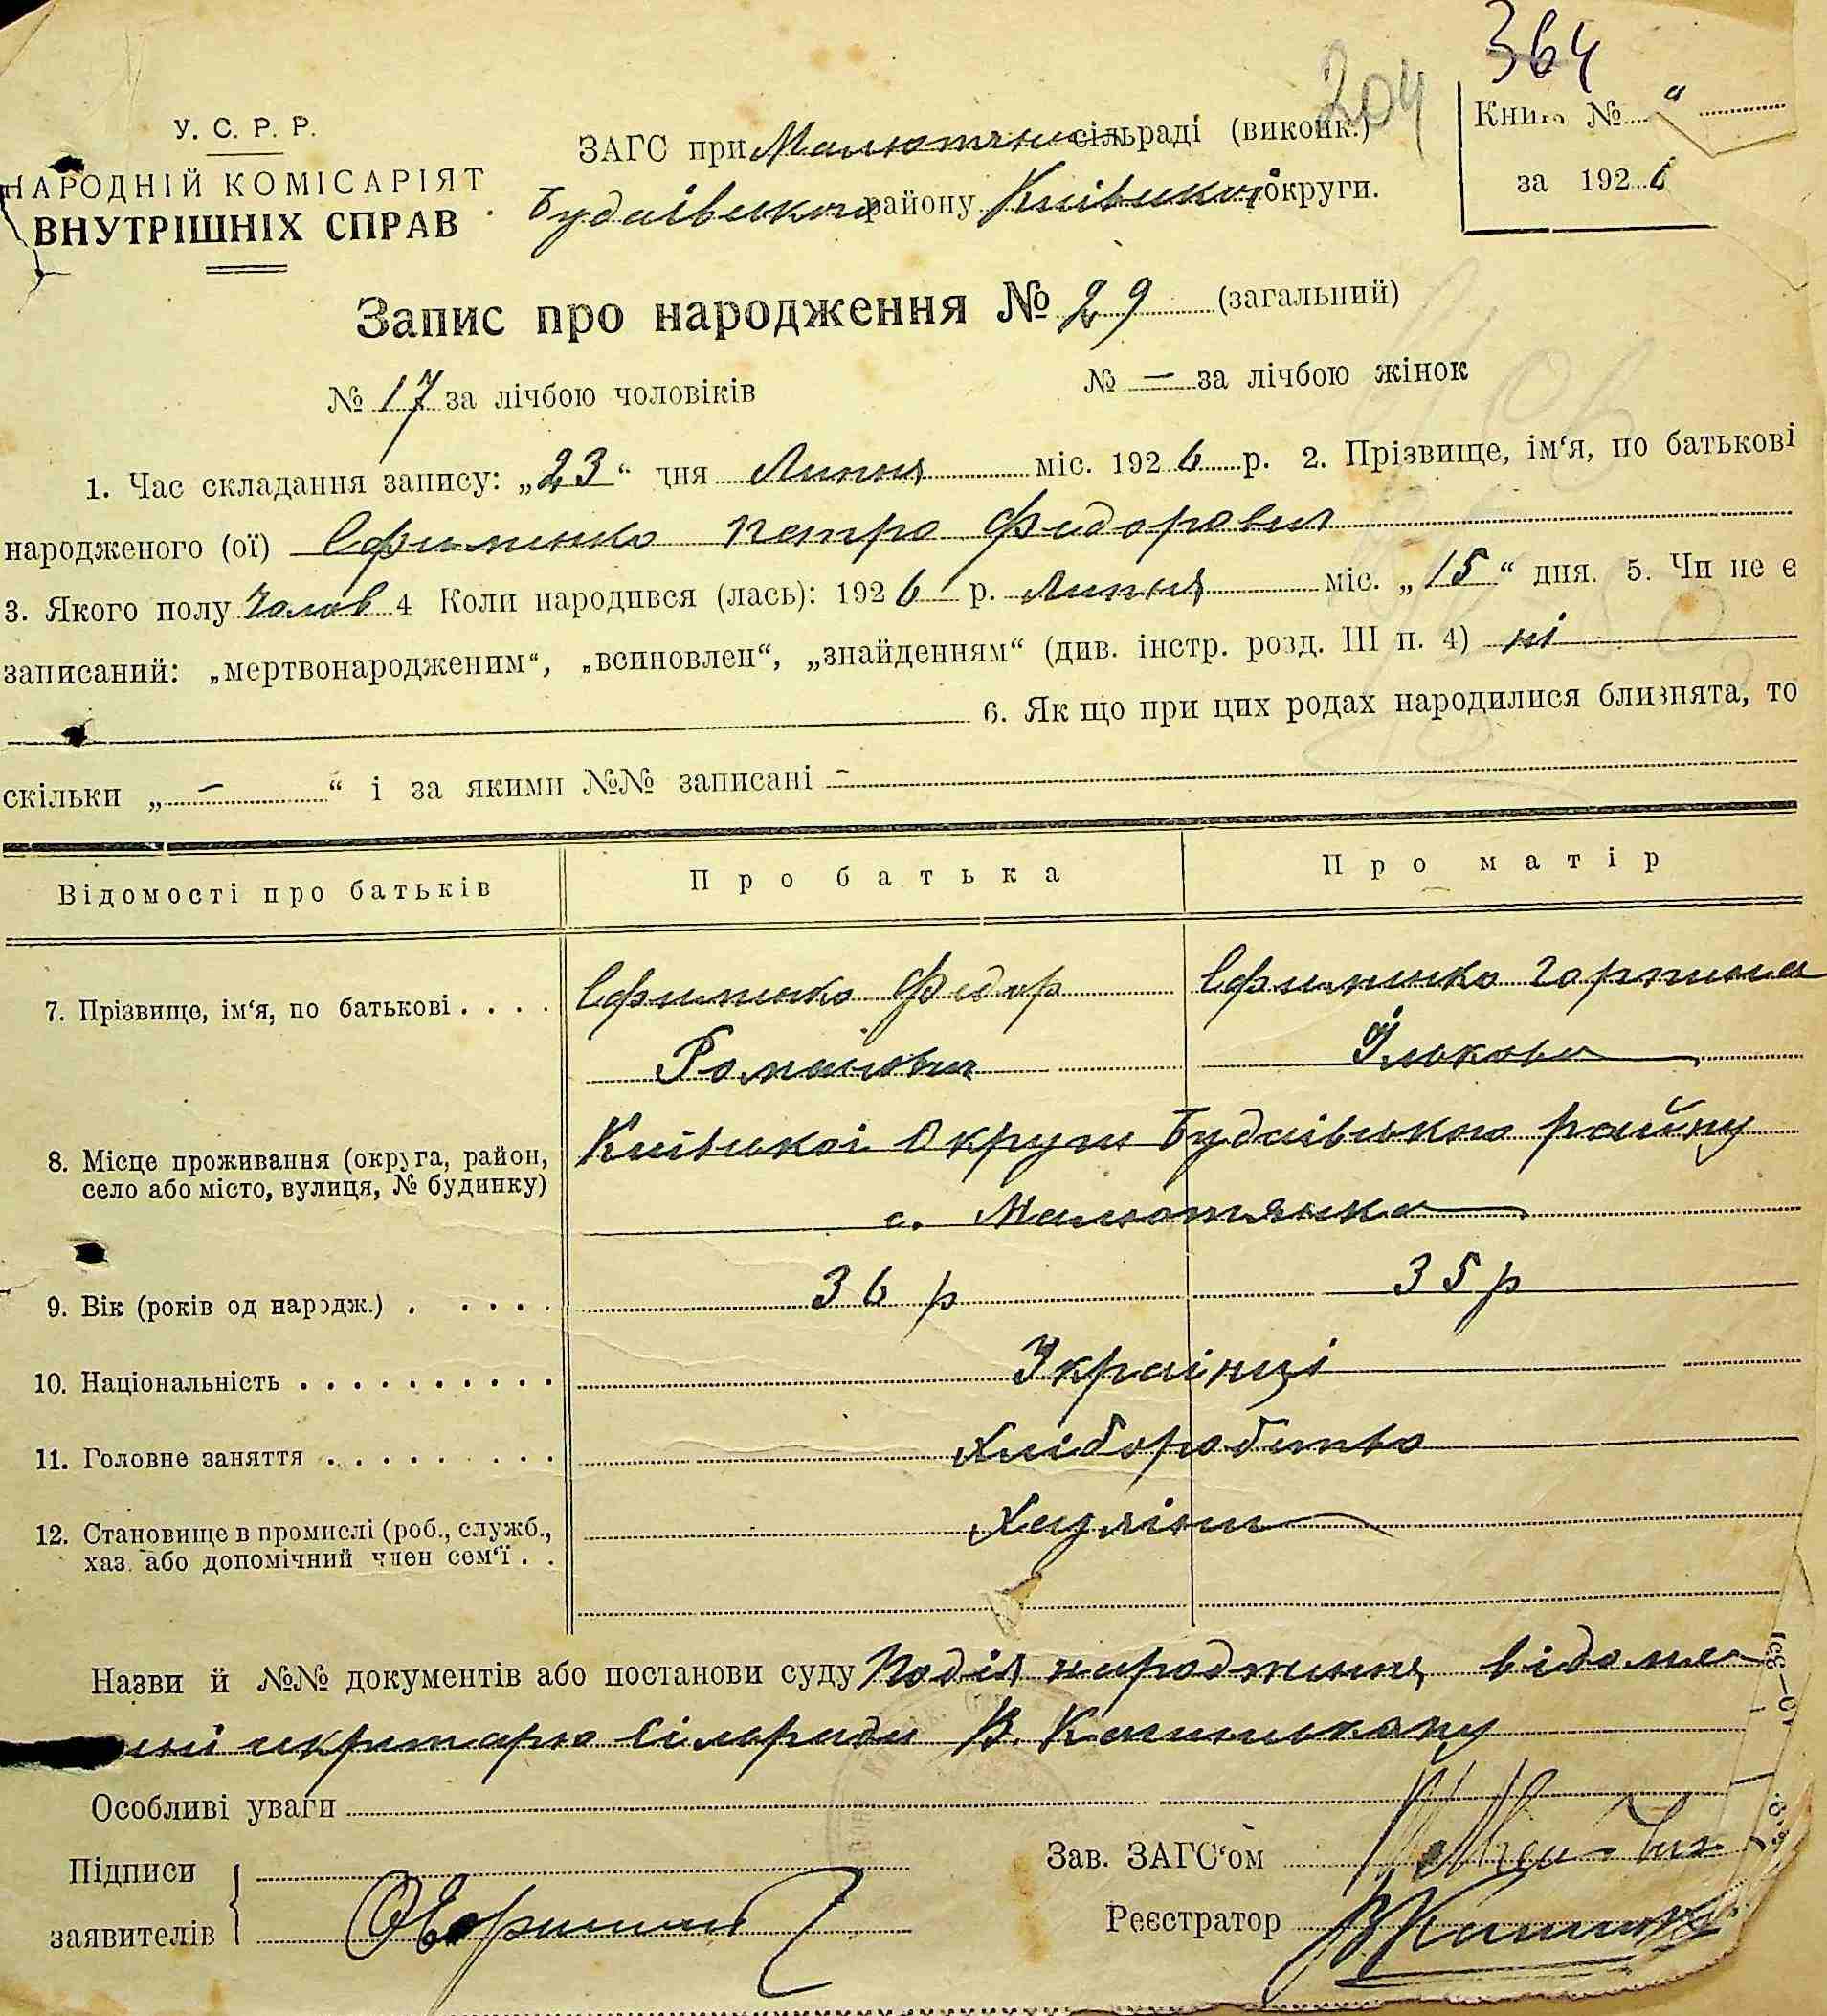 364
204
У. С. Р. Р.
НАРОДНІЙ КОМІСАРІЯТ
ВНУТРІШНІХ СПРАВ
ЗАГС при Малютянск сільраді (виконк.)
Будаївського району Київської округи.
Книга № "
за 1926
Запис про народження № 29 (загальний)
№ 17 за лічбою чоловіків
№ — за лічбою жінок
1. Час складання запису: „23“ дня Липня міс. 1926 р. 2. Прізвище, ім‘я, по батькові
народженого (ої) Єфименко Петро Федорович
3. Якого полу Чолов 4 Коли народився (лась): 1926 р. Липня міс. „15“ дня. 5. Чи не є
записаний: „мертвонародженим“, „всиновлен“, „знайденням“ (див. інстр. розд. III п. 4) ні
6. Як що при цих родах народилися близнята, то
скільки „ — “ і за якими №№ записані —
Відомості про батьків
Про батька
Про матір
7. Прізвище, ім‘я, по батькові . . . .
Єфименко Федор
Єфименко Горпина
Романович
Ількова
8. Місце проживання (округа, район,
село або місто, вулиця, № будинку)
Київської Округи Будаївського району
с. Малютянка
9. Вік (років од народж.) . . . . .
36 р
35 р
10. Національність . . . . . . . . . .
Українці
11. Головне заняття . . . . . . . . .
Хліборобство
12. Становище в промислі (роб., служб.,
хаз. або допомічний член сем‘ї . .
Хазяїни
Назви й №№ документів або постанови суду Подія народження відома
секретарю Сільради В.
Особливі уваги
Підписи
заявителів
Зав. ЗАГС‘ом
Реєстратор